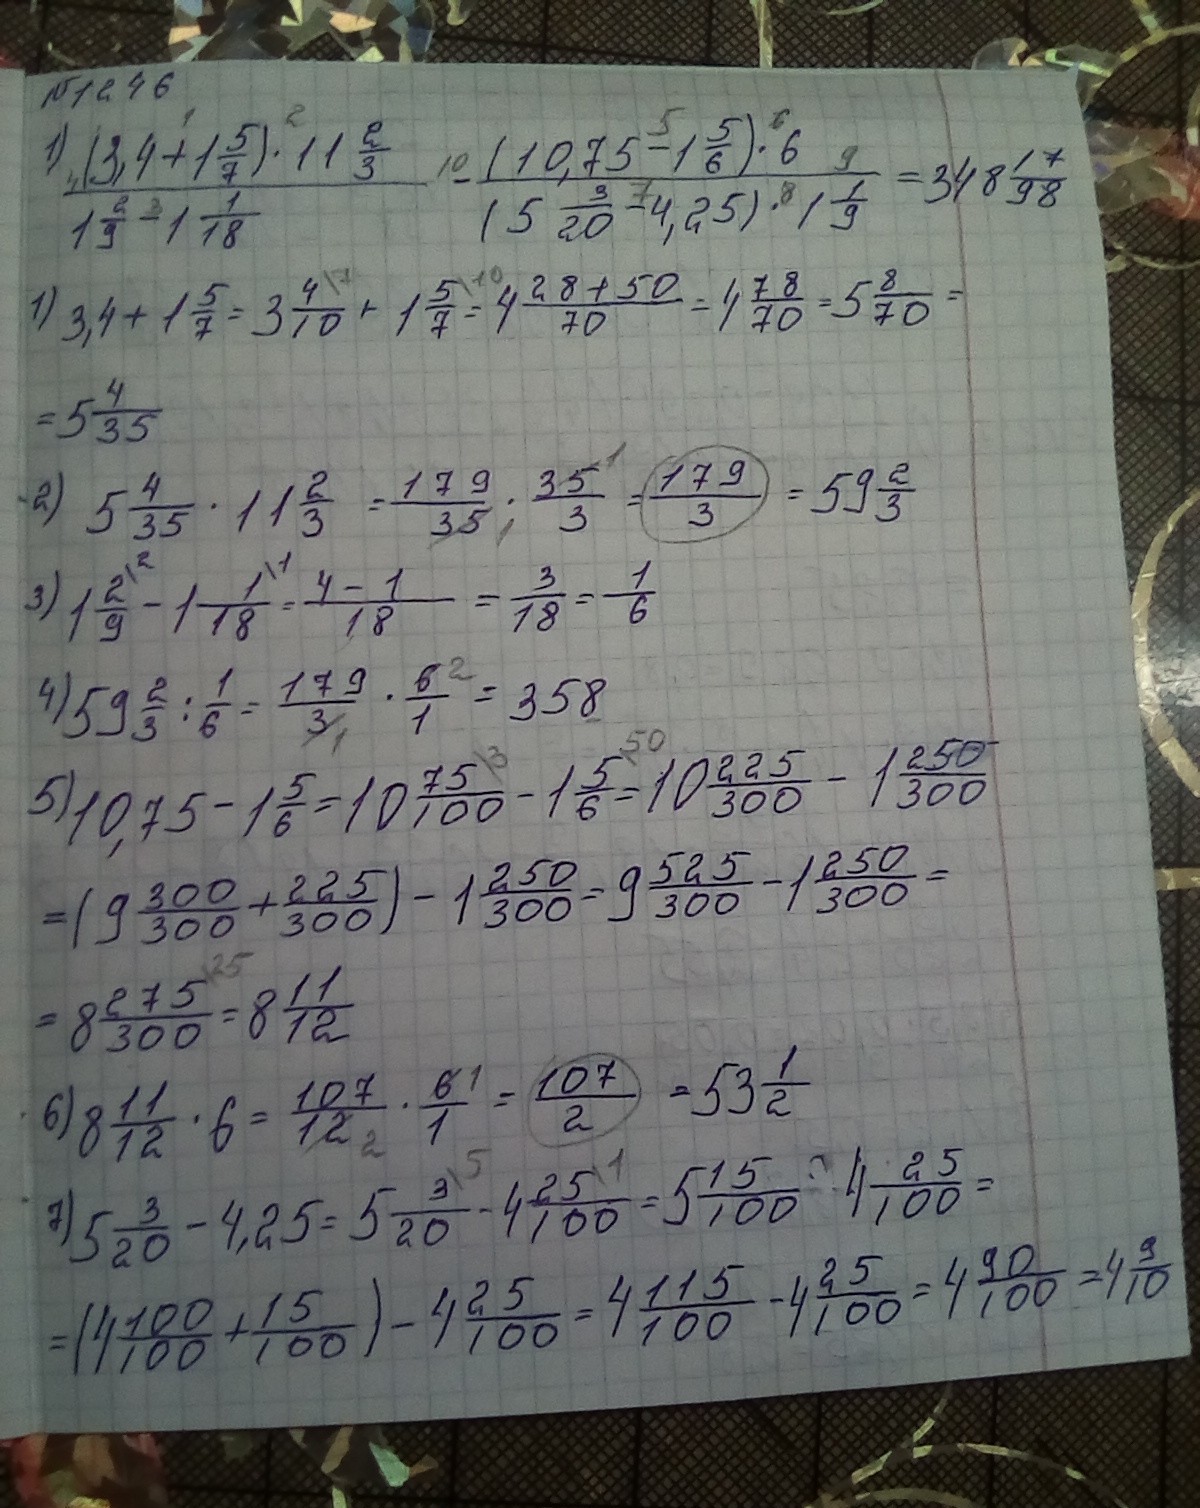 №1246
1) ((3,4+1 5/7)·11 2/3)/(1 2/9-1 1/18) - ((10,75-1 5/6)·6)/((5 3/20-4,25)·1 1/9) = 348 17/98
1) 3,4+1 5/7=3 4/10\7+1 5/7\10=4 (28+50)/70=4 78/70=5 8/70=
=5 4/35
2) 5 4/35·11 2/3=179/35·35/3=179/3=59 2/3
3) 1 2/9\2-1 1/18\1=(4-1)/18=3/18=1/6
4) 59 2/3:1/6=179/3·6/1=358
5) 10,75-1 5/6=10 75/100\3-1 5/6\50=10 225/300-1 250/300
=(9 300/300+225/300)-1 250/300=9 525/300-1 250/300=
=8 275/300\25=8 11/12
6) 8 11/12·6=107/12·6/1=107/2=53 1/2
7) 5 3/20-4,25=5 3/20\5-4 25/100\1=5 15/100-4 25/100=
=(4 100/100+15/100)-4 25/100=4 115/100-4 25/100=4 90/100=4 9/10